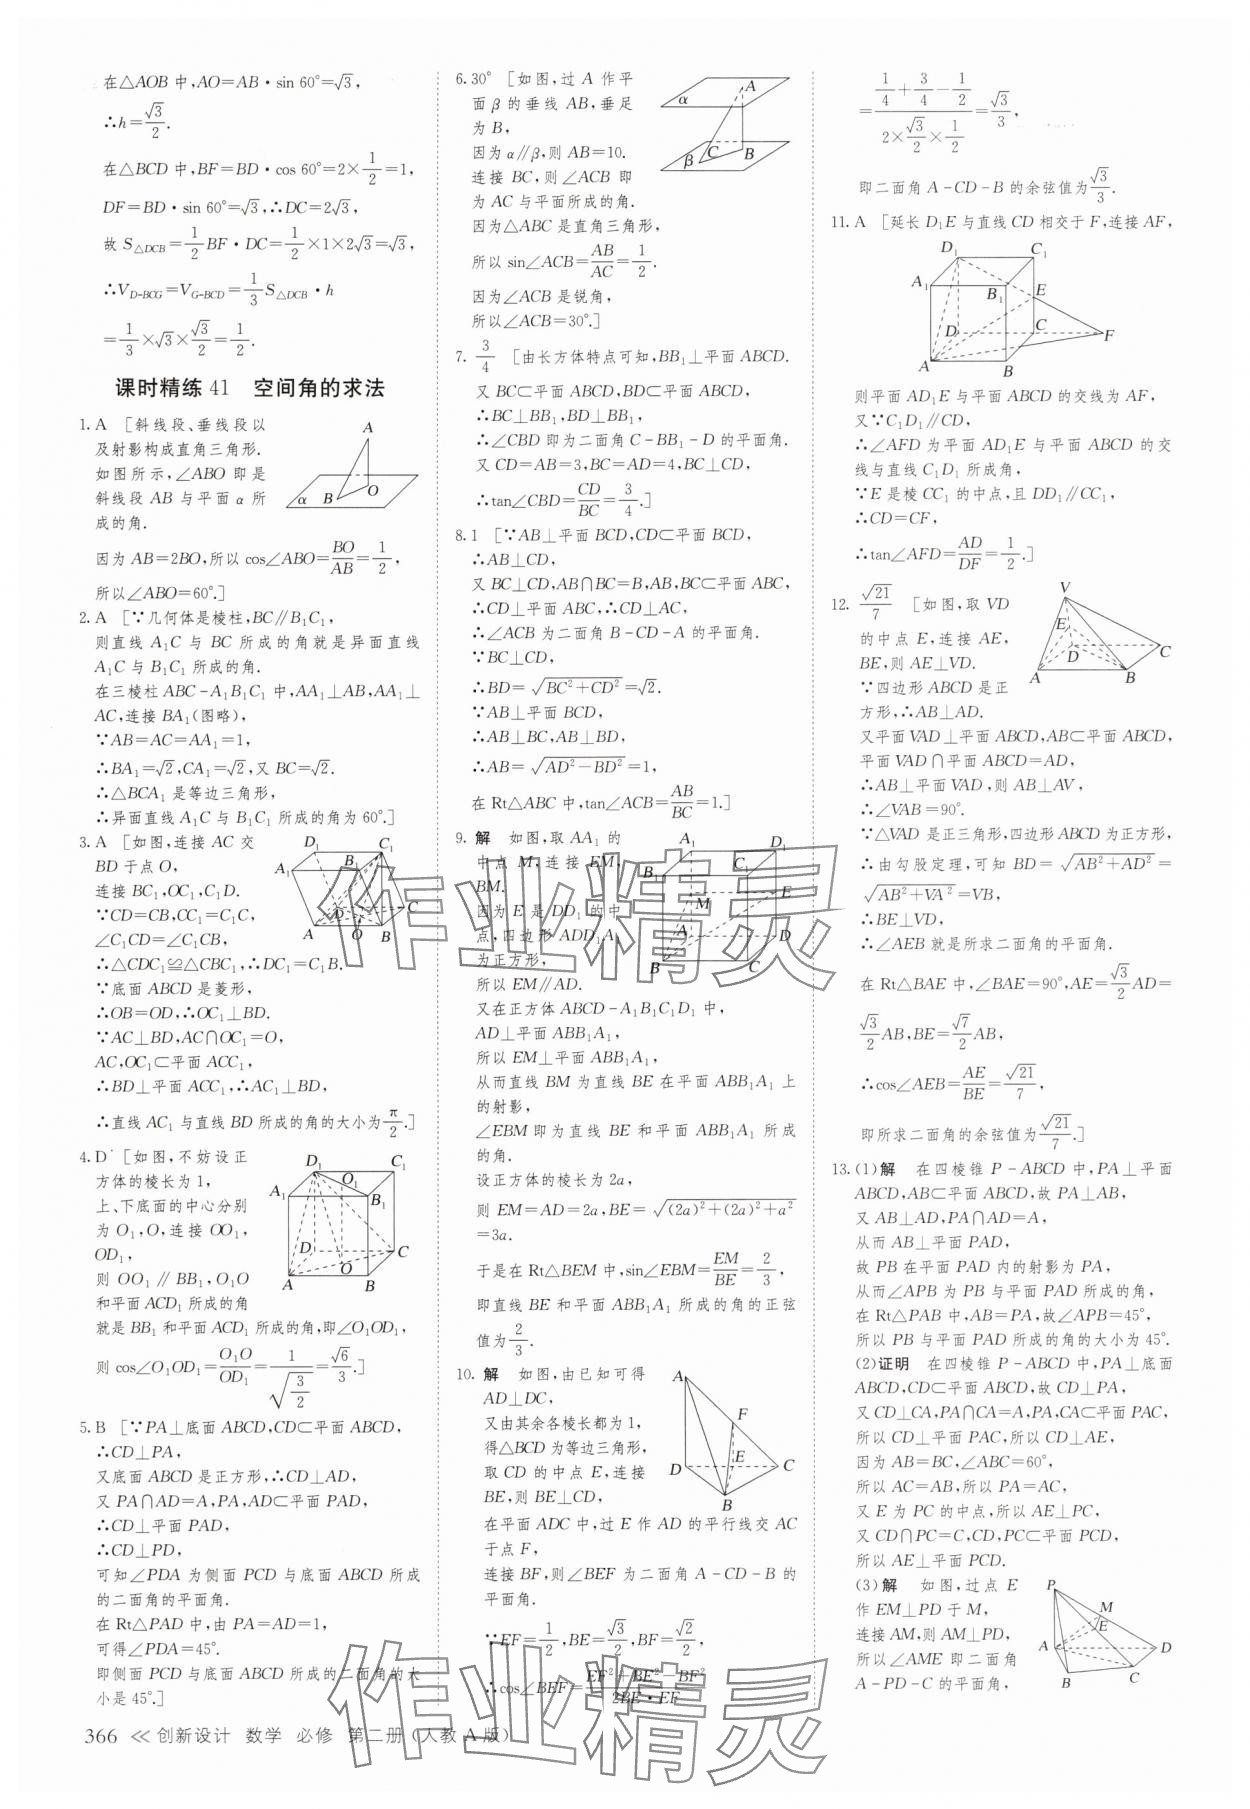 在△AOB中,AO=AB·sin 60°=√3,
∴h=√3/2.
在△BCD中,BF=BD·cos 60°=2×1/2=1,
DF=BD·sin 60°=√3,∴DC=2√3,
故S△DCB=1/2BF·DC=1/2×1×2√3=√3,
∴V_{D-BCG}=V_{G-BCD}=1/3S△DCB·h
=1/3×√3×√3/2=1/2.
课时精练41 空间角的求法
1.A [斜线段、垂线段以
及射影构成直角三角形.
如图所示,∠ABO即是
斜线段AB与平面α所
成的角.
因为AB=2BO,所以cos∠ABO=BO/AB=1/2,
所以∠ABO=60°.]
A
B
O
α
2.A [∵几何体是棱柱,BC∥B₁C₁,
则直线A₁C与BC所成的角就是异面直线
A₁C与B₁C₁所成的角.
在三棱柱ABC-A₁B₁C₁中,AA₁⊥AB,AA₁⊥
AC,连接BA₁(图略),
∵AB=AC=AA₁=1,
∴BA₁=√2,CA₁=√2,又BC=√2.
∴△BCA₁是等边三角形,
∴异面直线A₁C与B₁C₁所成的角为60°.]
3.A [如图,连接AC交
BD于点O,
连接BC₁,OC₁,C₁D.
∵CD=CB,CC₁=C₁C,
∠C₁CD=∠C₁CB,
∴△CDC₁≌△CBC₁,∴DC₁=C₁B.
∵底面ABCD是菱形,
∴OB=OD,∴OC₁⊥BD.
∵AC⊥BD,AC∩OC₁=O,
AC,OC₁⊂平面ACC₁,
∴BD⊥平面ACC₁,∴AC₁⊥BD,
∴直线AC₁与直线BD所成的角的大小为π/2.]
D₁ C₁
A₁ B₁
D C
A O B
4.D [如图,不妨设正
方体的棱长为1,
上、下底面的中心分别
为O₁,O,连接OO₁,
OD₁,
则OO₁∥BB₁,O₁O
和平面ACD₁所成的角
就是BB₁和平面ACD₁所成的角,即∠O₁OD₁,
则cos∠O₁OD₁=O₁O/OD₁=1/√(3/2)=√6/3.]
D₁ C₁
A₁ O₁ B₁
D C
A O B
5.B [∵PA⊥底面ABCD,CD⊂平面ABCD,
∴CD⊥PA,
又底面ABCD是正方形,∴CD⊥AD,
又PA∩AD=A,PA,AD⊂平面PAD,
∴CD⊥平面PAD,
∴CD⊥PD,
可知∠PDA为侧面PCD与底面ABCD所成
的二面角的平面角.
在Rt△PAD中,由PA=AD=1,
可得∠PDA=45°.
即侧面PCD与底面ABCD所成的二面角的大
小是45°.]
6.30° [如图,过A作平
面β的垂线AB,垂足
为B,
因为α∥β,则AB=10.
连接BC,则∠ACB即
为AC与平面所成的角.
因为△ABC是直角三角形,
所以sin∠ACB=AB/AC=1/2.
因为∠ACB是锐角,
所以∠ACB=30°.]
α A
β C B
7.3/4 [由长方体特点可知,BB₁⊥平面ABCD.
又BC⊂平面ABCD,BD⊂平面ABCD,
∴BC⊥BB₁,BD⊥BB₁,
∴∠CBD即为二面角C-BB₁-D的平面角.
又CD=AB=3,BC=AD=4,BC⊥CD,
∴tan∠CBD=CD/BC=3/4.]
8.1 [∵AB⊥平面BCD,CD⊂平面BCD,
∴AB⊥CD,
又BC⊥CD,AB∩BC=B,AB,BC⊂平面ABC,
∴CD⊥平面ABC,∴CD⊥AC,
∴∠ACB为二面角B-CD-A的平面角.
∵BC⊥CD,
∴BD=√(BC²+CD²)=√2.
∵AB⊥平面BCD,
∴AB⊥BC,AB⊥BD,
∴AB=√(AD²-BD²)=1,
在Rt△ABC中,tan∠ACB=AB/BC=1.]
9.解 如图,取AA₁的
中点M,连接EM,
BM.
因为E是DD₁的中
点,四边形ADD₁A₁
为正方形,
所以EM∥AD.
又在正方体ABCD-A₁B₁C₁D₁中,
AD⊥平面ABB₁A₁,
所以EM⊥平面ABB₁A₁,
从而直线BM为直线BE在平面ABB₁A₁上
的射影,
∠EBM即为直线BE和平面ABB₁A₁所成
的角.
设正方体的棱长为2a,
则EM=AD=2a,BE=√((2a)²+(2a)²+a²)
=3a.
于是在Rt△BEM中,sin∠EBM=EM/BE=2/3,
即直线BE和平面ABB₁A₁所成的角的正弦
值为2/3.
A₁ D₁
B₁ C₁
M E
A D
B C
10.解 如图,由已知可得
AD⊥DC,
又由其余各棱长都为1,
得△BCD为等边三角形,
取CD的中点E,连接
BE,则BE⊥CD,
在平面ADC中,过E作AD的平行线交AC
于点F,
连接BF,则∠BEF为二面角A-CD-B的
平面角.
∵EF=1/2,BE=√3/2,BF=√2/2,
∴cos∠BEF=(EF²+BE²-BF²)/(2BE·EF)
A
F
D E C
B
=(1/4+3/4-1/2)/(2×√3/2×1/2)=√3/3,
即二面角A-CD-B的余弦值为√3/3.
11.A [延长D₁E与直线CD相交于F,连接AF,
D₁ C₁
A₁ B₁ E
D C F
A B
则平面AD₁E与平面ABCD的交线为AF,
又∵C₁D₁∥CD,
∴∠AFD为平面AD₁E与平面ABCD的交
线与直线C₁D₁所成角,
∵E是棱CC₁的中点,且DD₁∥CC₁,
∴CD=CF,
∴tan∠AFD=AD/DF=1/2.]
12.√21/7 [如图,取VD
的中点E,连接AE,
BE,则AE⊥VD.
∵四边形ABCD是正
方形,∴AB⊥AD.
又平面VAD⊥平面ABCD,AB⊂平面ABCD,
平面VAD∩平面ABCD=AD,
∴AB⊥平面VAD,则AB⊥AV,
∴∠VAB=90°.
∵△VAD是正三角形,四边形ABCD为正方形,
∴由勾股定理,可知BD=√(AB²+AD²)=
√(AB²+VA²)=VB,
∴BE⊥VD,
∴∠AEB就是所求二面角的平面角.
在Rt△BAE中,∠BAE=90°,AE=√3/2AD=
√3/2AB,BE=√7/2AB,
∴cos∠AEB=AE/BE=√21/7,
即所求二面角的余弦值为√21/7.]
V
E
D C
A B
13.(1)解 在四棱锥P-ABCD中,PA⊥平面
ABCD,AB⊂平面ABCD,故PA⊥AB,
又AB⊥AD,PA∩AD=A,
从而AB⊥平面PAD,
故PB在平面PAD内的射影为PA,
从而∠APB为PB与平面PAD所成的角,
在Rt△PAB中,AB=PA,故∠APB=45°,
所以PB与平面PAD所成的角的大小为45°.
(2)证明 在四棱锥P-ABCD中,PA⊥底面
ABCD,CD⊂平面ABCD,故CD⊥PA,
又CD⊥CA,PA∩CA=A,PA,CA⊂平面PAC,
所以CD⊥平面PAC,所以CD⊥AE,
因为AB=BC,∠ABC=60°,
所以AC=AB,所以PA=AC,
又E为PC的中点,所以AE⊥PC,
又CD∩PC=C,CD,PC⊂平面PCD,
所以AE⊥平面PCD.
(3)解 如图,过点E
作EM⊥PD于M,
连接AM,则AM⊥PD,
所以∠AME即二面角
A-PD-C的平面角,
P
M
E
A D
B C
366 ≪ 创新设计 数学 必修 第二册(人教A版)
作业精灵
作业精灵